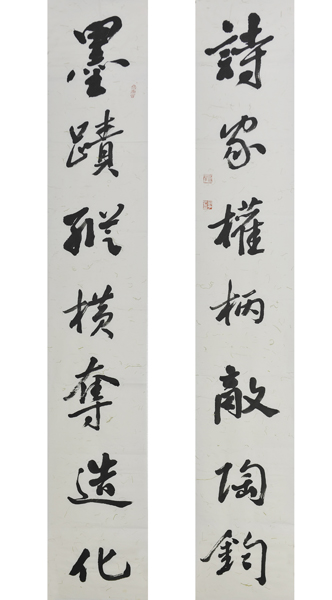 詩家權柄敵陶鈞
墨蹟縱橫奪造化